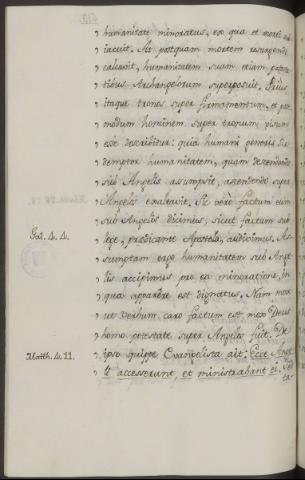 humanitate minoratus, ex qua et morti sub
iacuit. At postquam mortem resurgendo
calcavit, humanitatem suam etiam potes
tatibus Archangelorum superposuit. Prius
itaque tronos super firmamentum, et post
modum hominem super tronum visum
esse describitur: quia humani generis Re
demptor humanitatem, quam descendendo
sub Angelis assumpsit, ascendendo super
Angelos exaltavit. Sic vero factum eum
sub Angelis dicimus, sicut factum sub
Gal. 4. 4.
lege, predicante Apostolo, audivimus. As
sumptam ergo humanitatem sub Ange
lis accipimus pro ea minoratione, in
qua apparere est dignatus. Nam mox
ut Verbum caro factum est, mox Deus
homo potestate super Angelos fuit. De
Matth. 4. 11.
ipso quippe Evangelista ait: Ecce Ange
li accesserunt, et ministrabant ei.